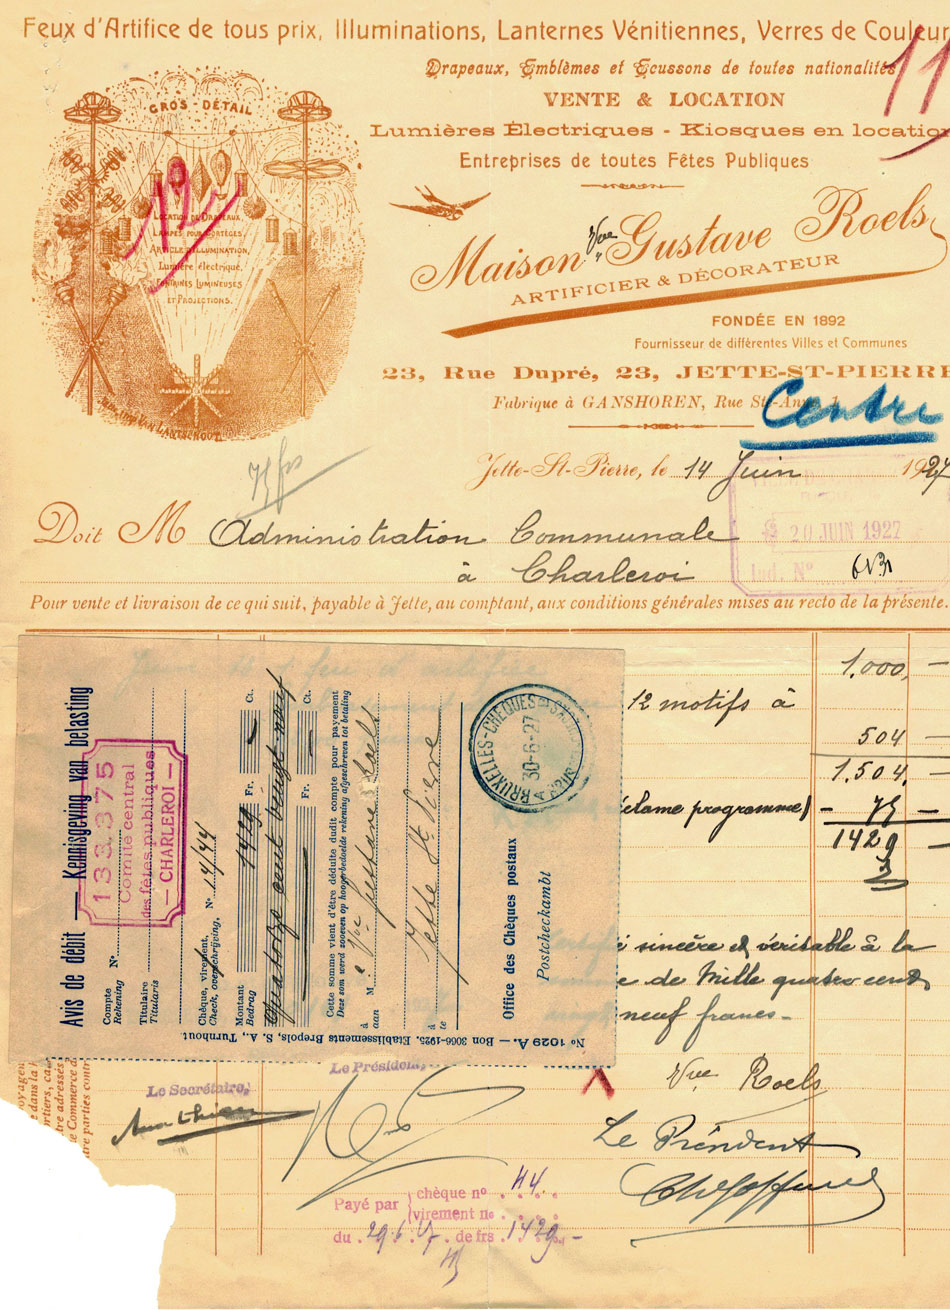 Feux d'Artifice de tous prix, Illuminations, Lanternes Vénitiennes, Verres de Couleur
Drapeaux, Emblèmes et Ecussons de toutes nationalités
11
VENTE & LOCATION
Lumières Électriques - Kiosques en location
Entreprises de toutes Fêtes Publiques
GROS - DÉTAIL
LOCATION DE DRAPEAUX,
LAMPES POUR CORTÈGES,
ARTICLE D'ILLUMINATION,
Lumière électrique,
FONTAINES LUMINEUSES
ET PROJECTIONS.
Maison Vve Gustave Roels
ARTIFICIER & DÉCORATEUR
FONDÉE EN 1892
Fournisseur de différentes Villes et Communes
23, Rue Dupré, 23, JETTE-ST-PIERRE
Fabrique à GANSHOREN, Rue Ste-Anne, 1
Centre
Jette-St-Pierre, le 14 Juin 1927
20 JUIN 1927
Ind. N°
Doit M Administration Communale
à Charleroi
Pour vente et livraison de ce qui suit, payable à Jette, au comptant, aux conditions générales mises au recto de la présente.
1.000, -
12 motifs à
504 -
1.504, -
programme) - 75 -
1429 -
sincère et véritable à la
de Mille quatre cent
neuf francs -
Vve Roels
Le Président
Avis de débit — Kennisgeving van belasting
Compte N°
Rekening
133.375
Comité central
des fêtes publiques
- CHARLEROI -
Titulaire
Titularis
Chèque, virement, N° 14/44
Check, overschrijving,
Montant 1429 Fr. — Ct.
Bedrag
quatorze cent vingt neuf Fr. — Ct.
Cette somme vient d'être déduite dudit compte pour payement
Deze som werd zooeven op hoogerbedoelde rekening afgeschreven tot betaling
à M Vve Gustave Roels
aan
à Jette St Pierre
te
Office des Chèques postaux
Postcheckambt
BRUXELLES-CHEQUES
30-6-27
No 1029 A. — Bon 3066-1925. Etablissements Brepols, S. A., Turnhout
Le Secrétaire,
Le Président,
Payé par chèque no 44
virement no
du 29.6.27. de frs 1429 -